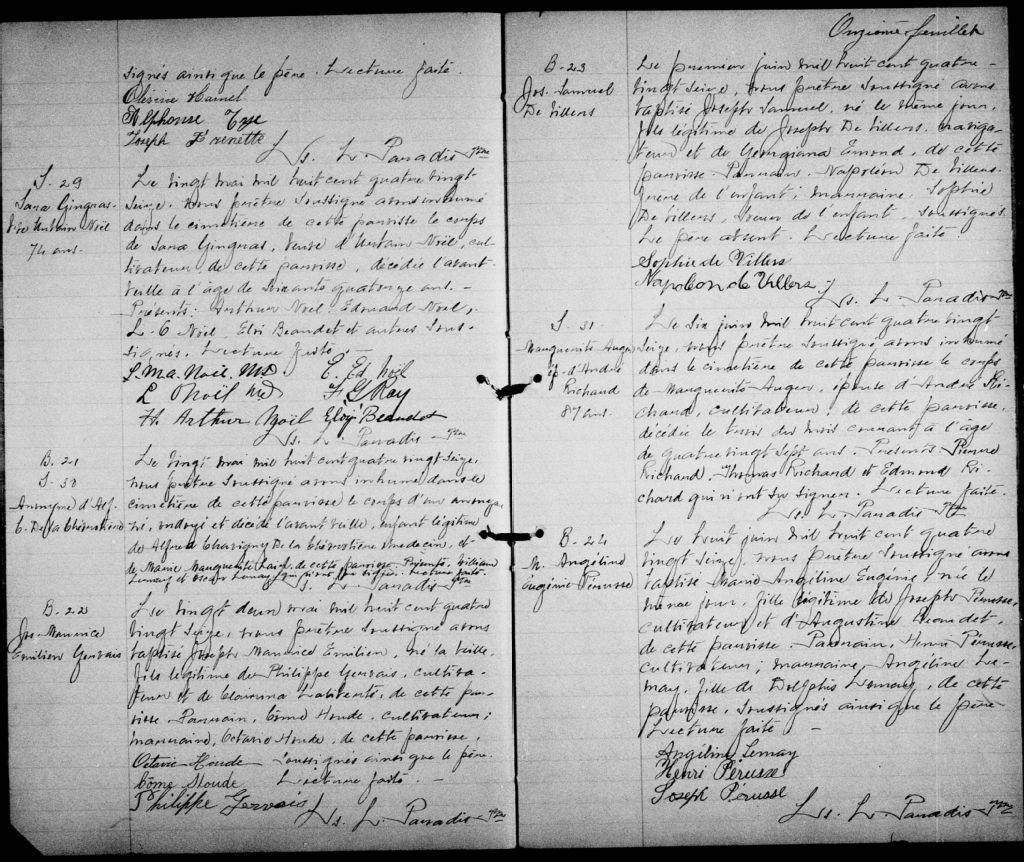 signés ainsi que le père. Lecture faite.
Olivine Hamel
Alphonse
Joseph Frenette
Ls. L. Paradis Ptre
S. 29
Sara Gingras
Vve Urbain Noël
74 ans.
Le vingt mai mil huit cent quatre vingt
seize, nous prêtre soussigné avons inhumé
dans le cimetière de cette paroisse le corps
de Sara Gingras, veuve d'Urbain Noël, cul-
tivateur, de cette paroisse, décédée l'avant-
veille à l'âge de soixante quatorze ans. -
Présents: Arthur Noel, Edouard Noel,
L. O Noël, Eloi Beaudet et autres sous-
signés. Lecture faite
L. M. A. Noël. MD E. Ed. Noël
L O Noël MD F. G Roy
H. Arthur Noël Eloÿ Beaudet
Ls. L. Paradis Ptre
B. 21
S. 30
Anonyme d'Alf.
C. De la Chévrotière
Le vingt mai mil huit cent quatre vingt seize,
nous prêtre soussigné avons inhumé dans le
cimetière de cette paroisse le corps d'un anonyme
né, ondoyé et décédé l'avant veille, enfant légitime
de Alfred Chavigny De la Chévrotière médecin, et
de Marie Marguerite de cette paroisse. Présents, William
Lemay et Oscar Lemay Lecture faite.
Ls. L. Paradis Ptre
B. 22
Jos. Maurice
Emilien Gervais
Le vingt deux mai mil huit cent quatre
vingt seize, nous prêtre soussigné avons
baptisé Joseph Maurice Emilien, né la veille,
fils légitime de Philippe Gervais, cultiva-
teur et de Laliberté, de cette pa-
roisse. Parrain, Côme Houde, cultivateur;
marraine, Octavie Houde, de cette paroisse,
Octavie Houde soussignés ainsi que le père.
Côme Houde Lecture faite. -
Philippe Gervais
Ls. L. Paradis Ptre
Onzième feuillet
B. 23
Jos. Samuel
De Villers
Le premier juin mil huit cent quatre-
vingt seize, nous prêtre soussigné avons
baptisé Joseph Samuel, né le même jour,
fils légitime de Joseph De Villers, naviga-
teur et de Georgiana Emond, de cette
paroisse. Parrain, Napoléon De Villers,
frère de l'enfant; marraine, Sophie
De Villers, soeur de l'enfant, soussignés.
Le père absent. Lecture faite.
Sophie de Villers
Napoléon de Villers
Ls. L. Paradis Ptre
S. 31
Marguerite Auger
ép. d'André
Richard
87 ans.
Le six juin mil huit cent quatre vingt
seize, nous prêtre soussigné avons inhumé
dans le cimetière de cette paroisse le corps
de Marguerite Auger, épouse d'André Ri-
chard, cultivateur, de cette paroisse,
décédée le trois du mois courant à l'âge
de quatre vingt sept ans. Présents Pierre
Richard, Thomas Richard et Edmond Ri-
chard qui n'ont su signer. Lecture faite.
Ls. L. Paradis Ptre
B. 24
M. Angéline
Eugénie Pérusse
Le huit juin mil huit cent quatre
vingt seize, nous prêtre soussigné avons
baptisé Marie Angéline Eugénie, née le
même jour, fille légitime de Joseph Pérusse,
cultivateur et d'Augustine Beaudet,
de cette paroisse. Parrain, Henri Pérusse,
cultivateur; marraine, Angéline Le-
may, fille de Dolphis Lemay, de cette
paroisse, soussignés ainsi que le père
Lecture faite -
Angéline Lemay
Henri Pérusse
Joseph Pérusse
Ls. L. Paradis Ptre